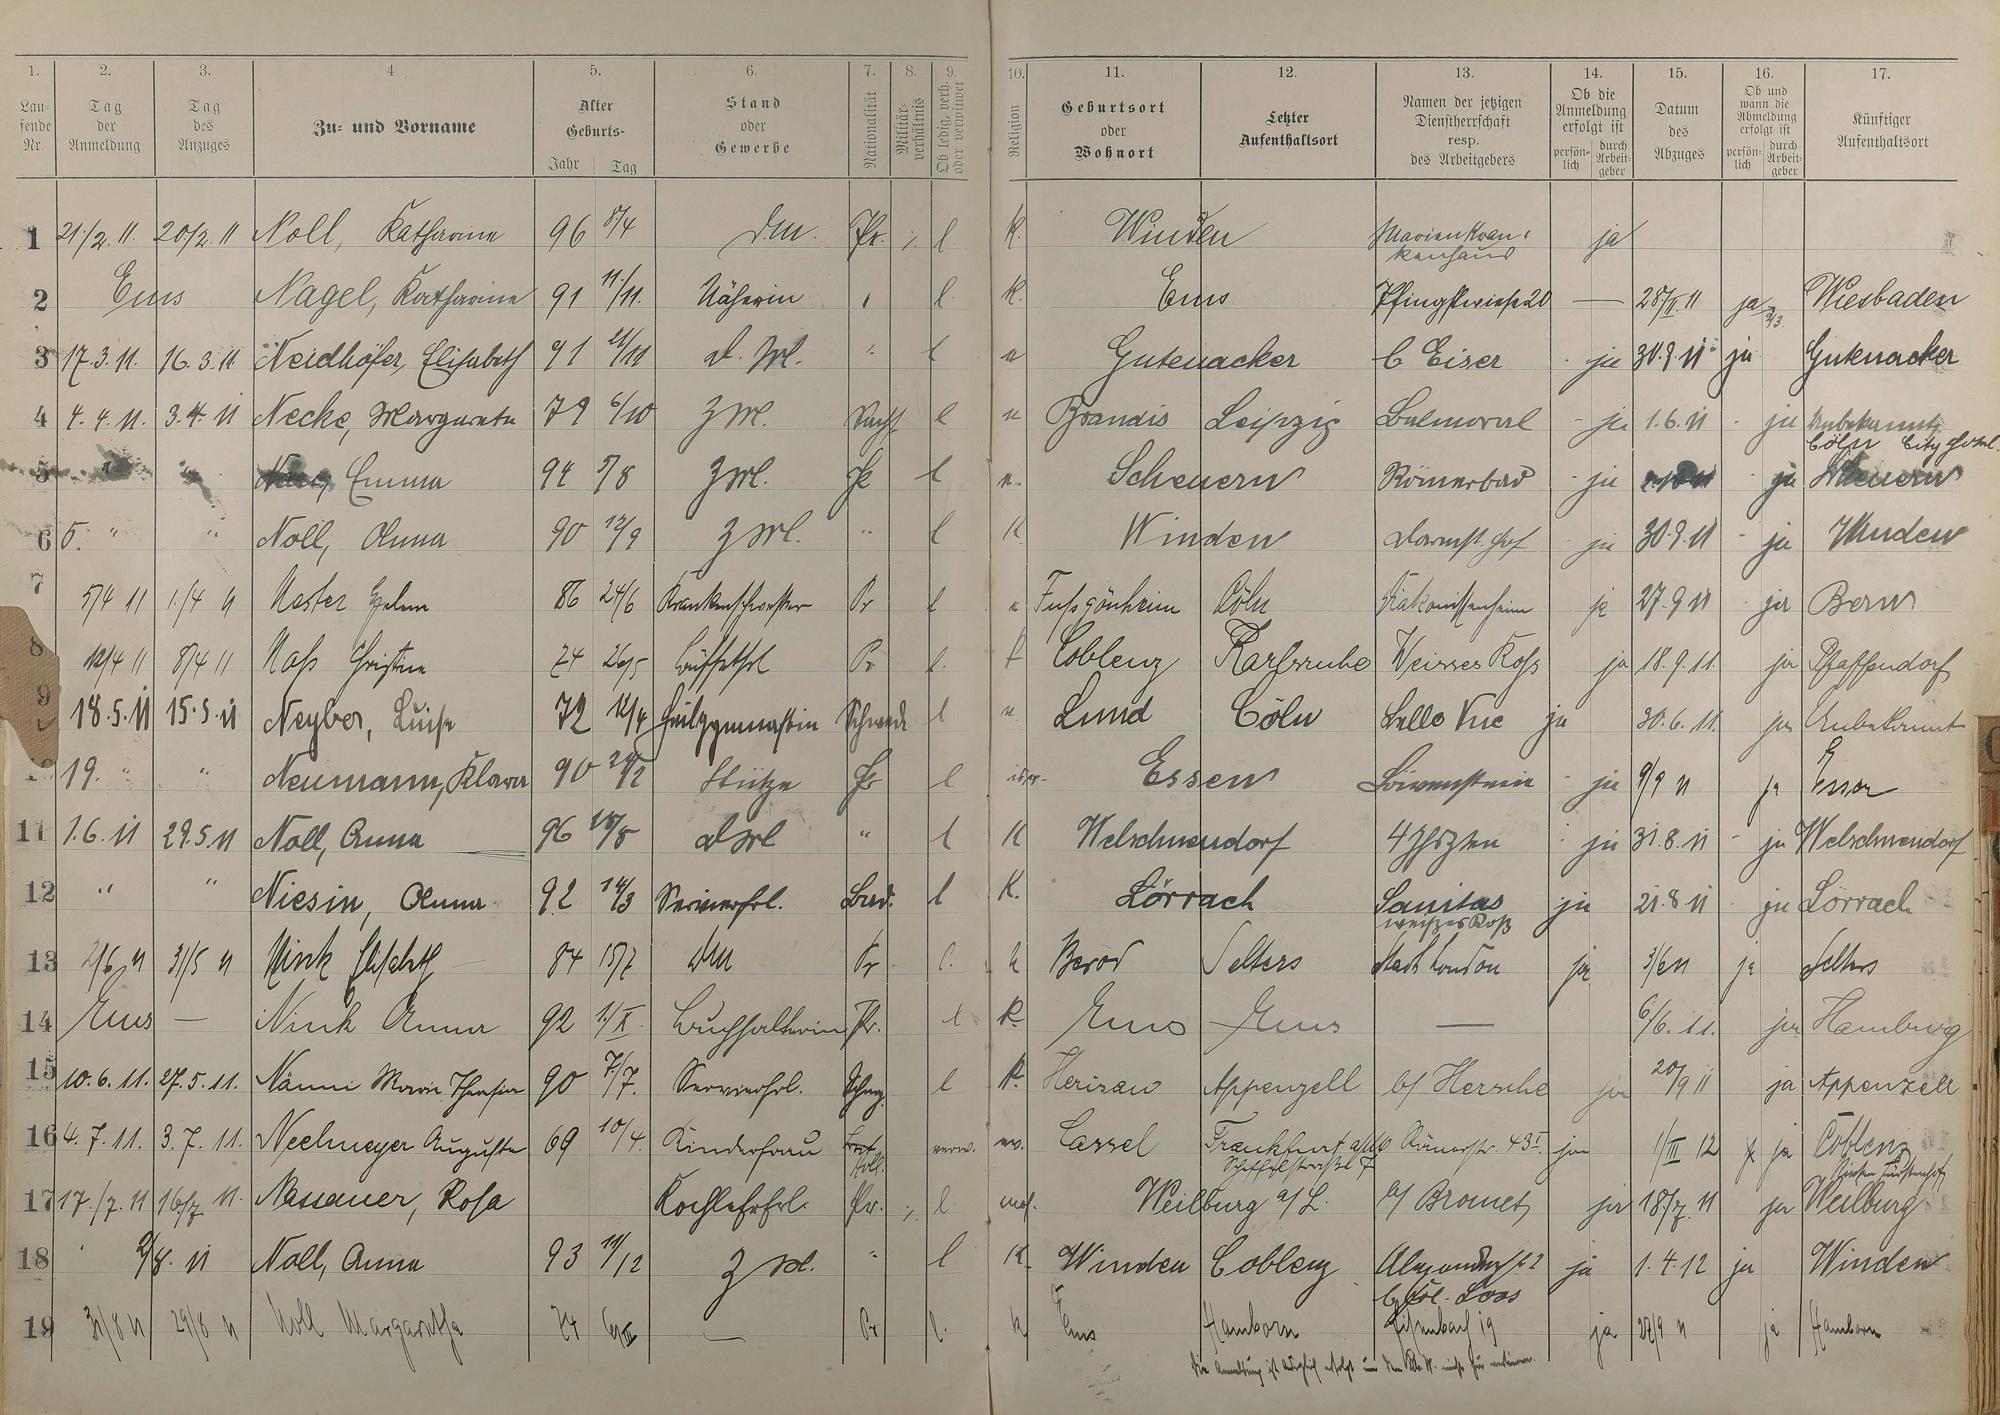 1. 2. 3. 4. 5. 6. 7. 8. 9. 10. 11. 12. 13. 14. 15. 16. 17.
Laufende Nr. Tag der Anmeldung Tag des Anzuges Zu- und Vorname Alter Geburts- Jahr Tag Stand oder Gewerbe Nationalität Militärverhältnis Ob ledig, verh. oder verwitwet Religion Geburtsort oder Wohnort Letzter Aufenthaltsort Namen der jetzigen Dienstherrschaft resp. des Arbeitgebers Ob die Anmeldung erfolgt ist persönlich durch Arbeitgeber Datum des Abzuges Ob und wann die Abmeldung erfolgt ist persönlich durch Arbeitgeber Künftiger Aufenthaltsort
1 21/2. 11. 20/2. 11 Noll, Katharina 96 8/4 d.m. Pr. ·/. l. K. Winden Marienkrankenhaus ja
2 Ems Nagel, Katharina 91 11/11. Näherin " l. K. Ems Pfingstwiese 20 — 28/II 11 ja 2/3 Wiesbaden
3 17.3.11. 16.3.11 Neidhöfer, Elisabeth 91 21/11 d. Ml. " l Gutenacker b Eiser ja 30.9.11 ja Gutenacker
4 4.4.11. 3.4.11 Necke, Margareta 79 6/10 Z Ml. Sachs l Brandis Leipzig Balmoral ja 1.6.11 ja Unbekannt
Cöln City Hotel.
5 " " Emma 94 5/8 Z Ml. Pr l Scheuern Römerbad ja ja Scheuern
6 5. " " Noll, Anna 90 12/9 Z Ml. " l K Winden Darmst. Hof ja 30.9.11 ja Winden
7 5/4 11 1./4 11 Nester 86 24/6 Krankenschwester Pr l Fußgönheim Cöln Diakonissenheim ja 27.9 11 ja Bern
8 12/4 11 8/4 11 Naß Christine 74 26/5 Büffetfrl Pr l. Coblenz Karlsruhe Weisses Roß ja 18.9.11. ja Pfaffendorf
9 18.5.11 15.5.11 Neyber, Luise 72 12/4 Heilgymnastin Schwede l Lund Cöln Belle Vue ja 30.6.11. ja Unbekannt
10 19. " " Neumann, Klara 90 24/2 Stütze Pr l isr. Essen Löwenstein ja 9/9 11 ja Essen
11 1.6.11 29.5.11 Noll, Anna 96 d Ml " l K Welschneudorf 4 Jhszten ja 31.8.11 ja Welschneudorf
12 " " Niesin, Anna 92 14/3 Servierfrl. Bad. l K. Lörrach Sanitas ja 21.8 11 ja Lörrach
weißes Roß
13 2/6 11 31/5 11 Nink Elisabeth 84 15/7 dM Pr l. k Berod Selters Stadt London ja 3/6 11 ja Selters
14 Ems — Nink Anna 92 1./X. Buchhalterin Pr. l K. Ems Ems — 6/6. 11. ja Hamburg
15 10.6.11. 27.5.11. Nänni Maria Theresia 90 7/7. Servierfrl. Schwz. l K. Herisau Appenzell b/ Hersche ja 20/9 11 ja Appenzell
16 4.7.11. 3.7.11. Neelmeyer Auguste 69 10/4. Kinderfrau Holl. verw. ev. Cassel Frankfurt a/M Römerstr. 43 I ja 1/III 12 ja Coblenz
Scheffelstraße 7
17 17./7. 11 16/7 11. Nassauer, Rosa Kochlehrfrl. Pr. ·/. l mos. Weilburg a/L. b/ Bromet ja 18./7. 11 ja Weilburg
18 2/8. 11 Noll, Anna 93 11/12 Z Ml. " l K. Winden Coblenz Alexanderstr 2 ja 1.4.12 ja Winden
b Frl. Loos
19 31/8 11 29/8 11 Noll Margaretha 74 — Pr l. k Ems Hamborn 19 ja 27/9 11 ja Hamborn